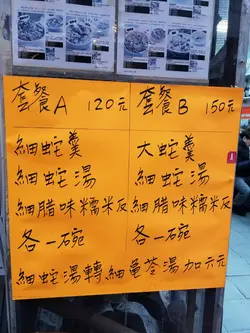 套餐A 120元
細蛇羹
細蛇湯
細腊味糯米灰
各一碗
套餐B 150元
大蛇羹
細蛇湯
細腊味糯米灰
各一碗
細蛇湯轉細龜苓湯加六元